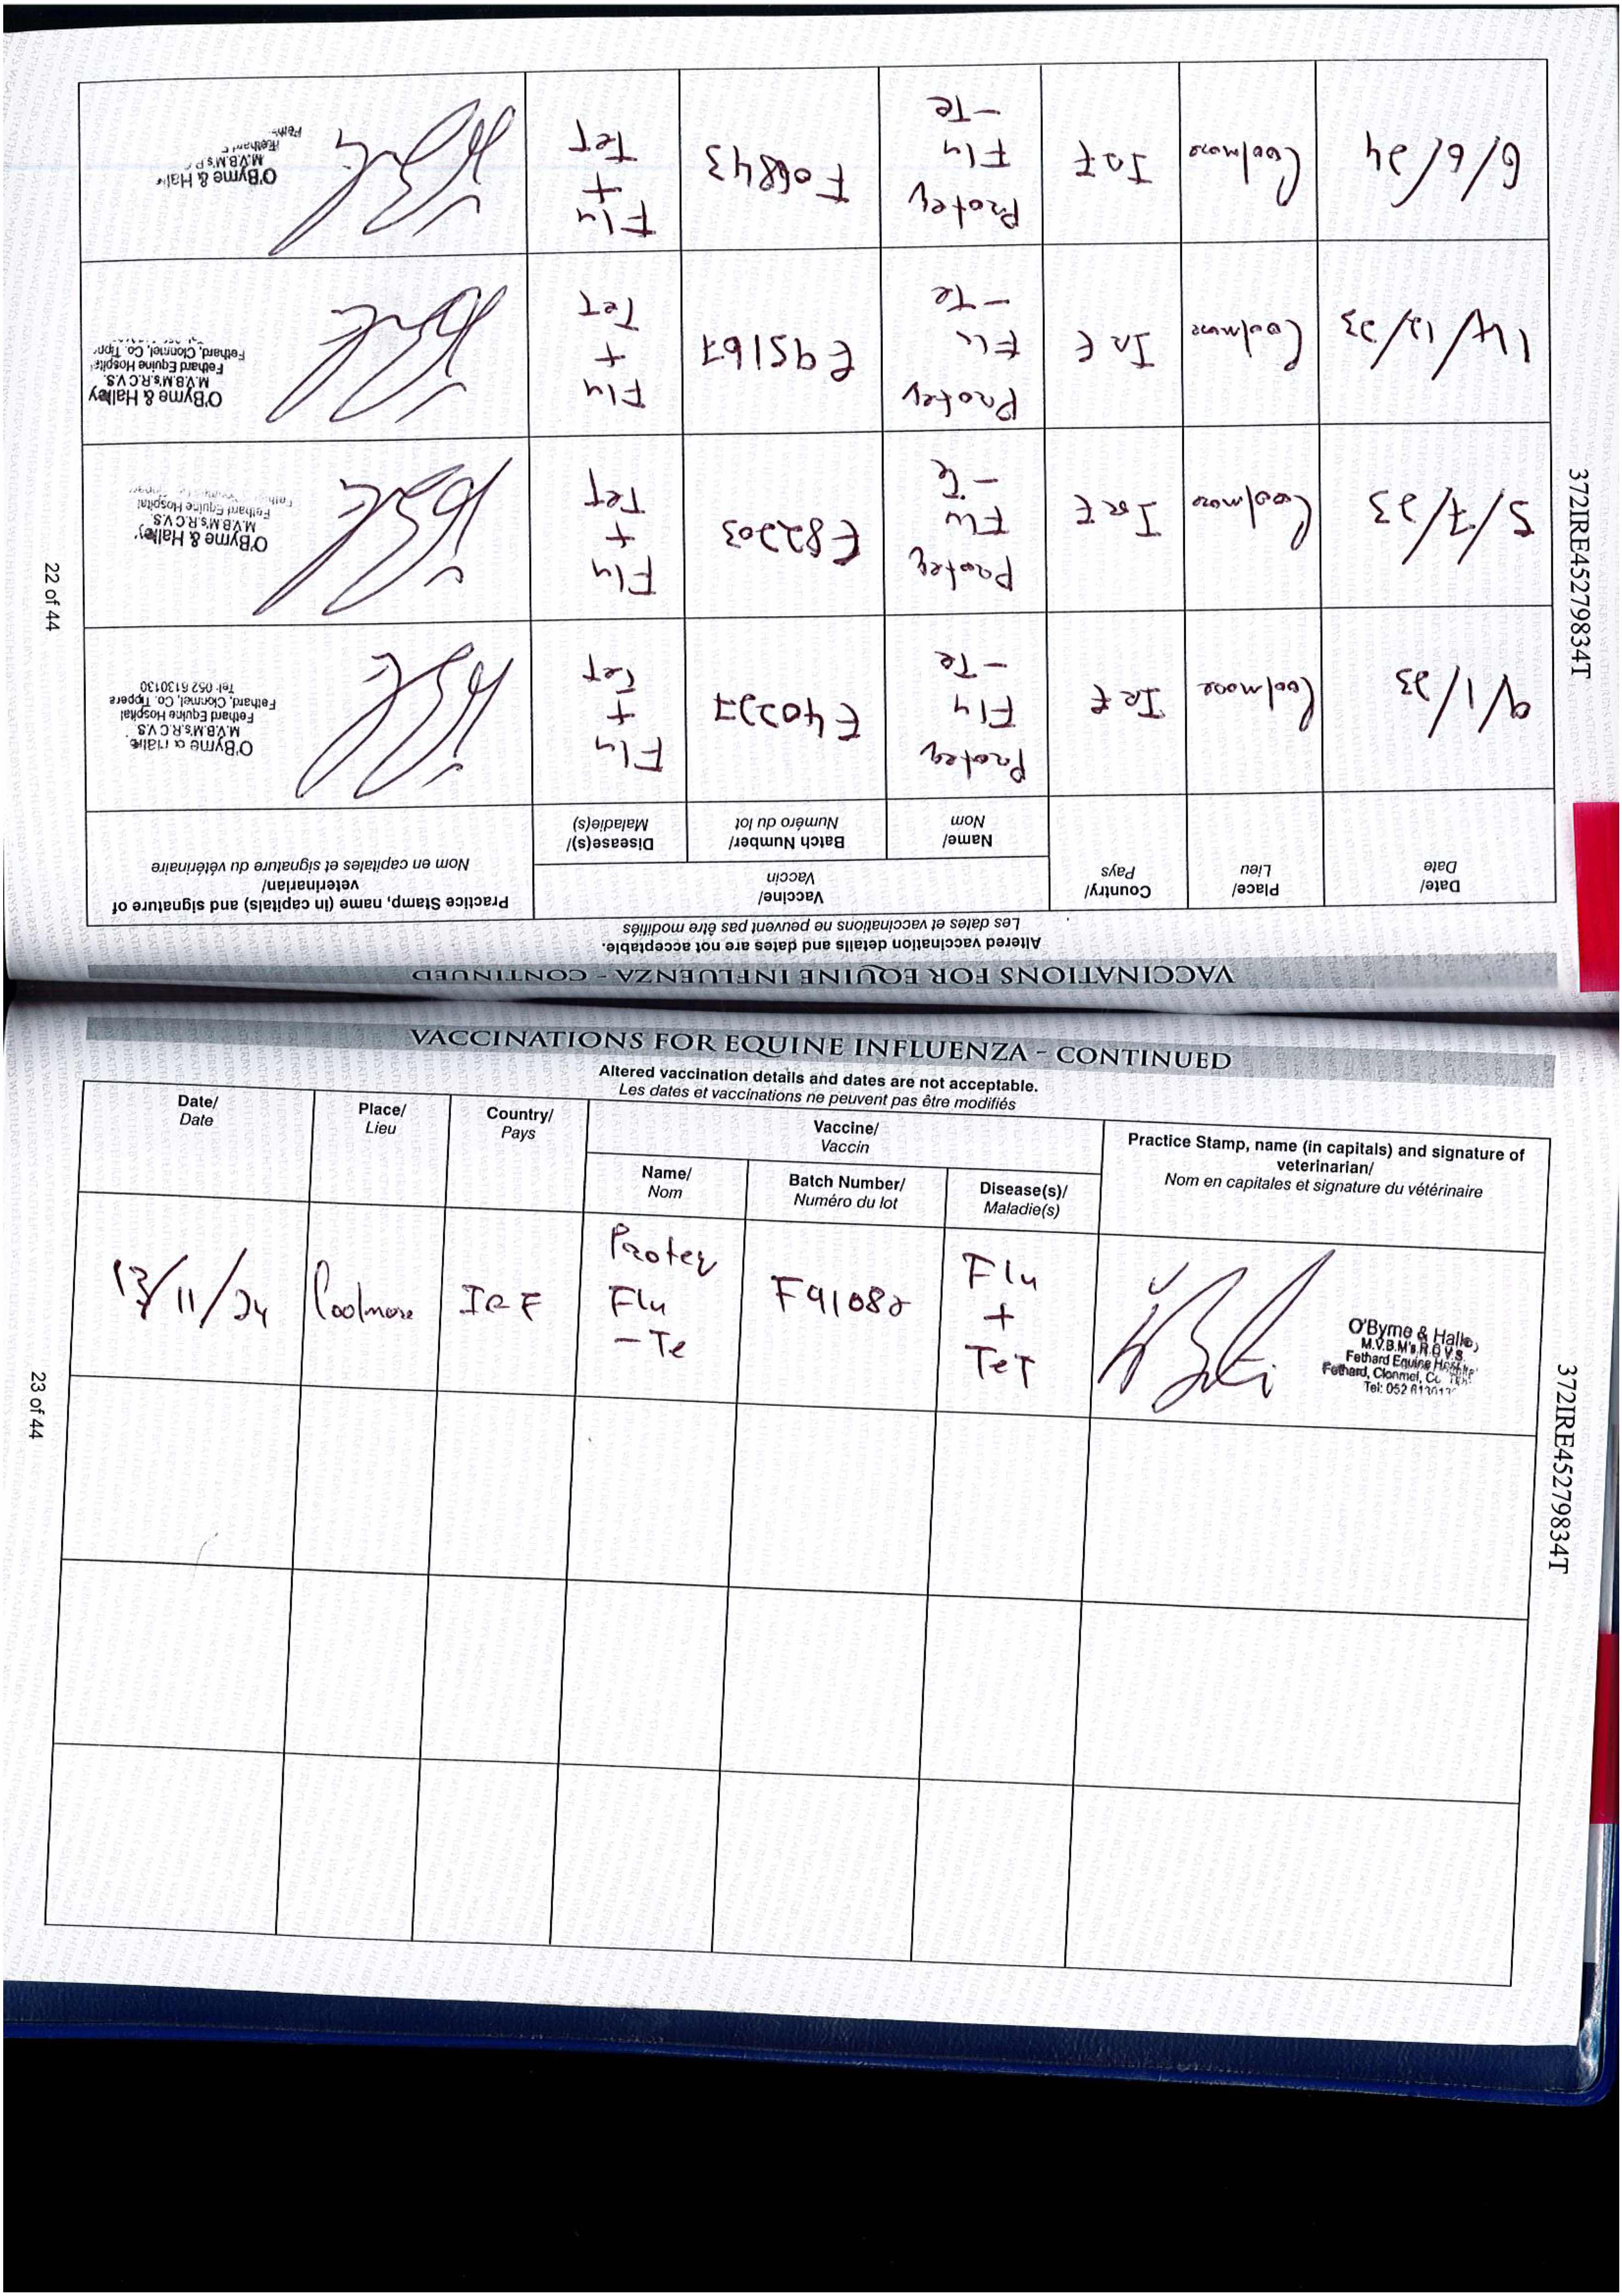 VACCINATIONS FOR EQUINE INFLUENZA - CONTINUED
Altered vaccination details and dates are not acceptable.
Les dates et vaccinations ne peuvent pas être modifiés
Date/
Date
Place/
Lieu
Country/
Pays
Vaccine/
Vaccin
Name/
Nom
Batch Number/
Numéro du lot
Disease(s)/
Maladie(s)
Practice Stamp, name (in capitals) and signature of
veterinarian/
Nom en capitales et signature du vétérinaire
9/1/23
Coolmore
IRE
Proteq
Flu
-Te
E40227
Flu
+
Tet
M.V.B.M's,R.C.V.S.
Fethard Equine Hospital
Fethard, Clonmel, Co. Tippera
Tel: 052 6130130
5/7/23
Coolmore
IRE
Proteq
Flu
-Te
E82203
Flu
+
Tet
O'Byrne & Halley
M.V.B.M's,R.C.V.S.
Fethard Equine Hospital
14/12/23
Coolmore
IRE
Proteq
Flu
-Te
E95167
Flu
+
Tet
O'Byrne & Halley
M.V.B.M's,R.C.V.S.
Fethard Equine Hospital
Fethard, Clonmel, Co. Tipp
6/6/24
Coolmore
IRE
Proteq
Flu
-Te
F06843
Flu
+
Tet
O'Byrne & Halle
M.V.B.M's
22 of 44
372IRE45279834T
VACCINATIONS FOR EQUINE INFLUENZA - CONTINUED
Altered vaccination details and dates are not acceptable.
Les dates et vaccinations ne peuvent pas être modifiés
Date/
Date
Place/
Lieu
Country/
Pays
Vaccine/
Vaccin
Name/
Nom
Batch Number/
Numéro du lot
Disease(s)/
Maladie(s)
Practice Stamp, name (in capitals) and signature of
veterinarian/
Nom en capitales et signature du vétérinaire
13/11/24
Coolmore
IRE
Proteq
Flu
-Te
Flu
+
TeT
O'Byrne & Halle
M.V.B.M's,R.C.V.S.
Fethard Equine
Fethard, Clonmel,
Tel: 052
23 of 44
372IRE45279834T